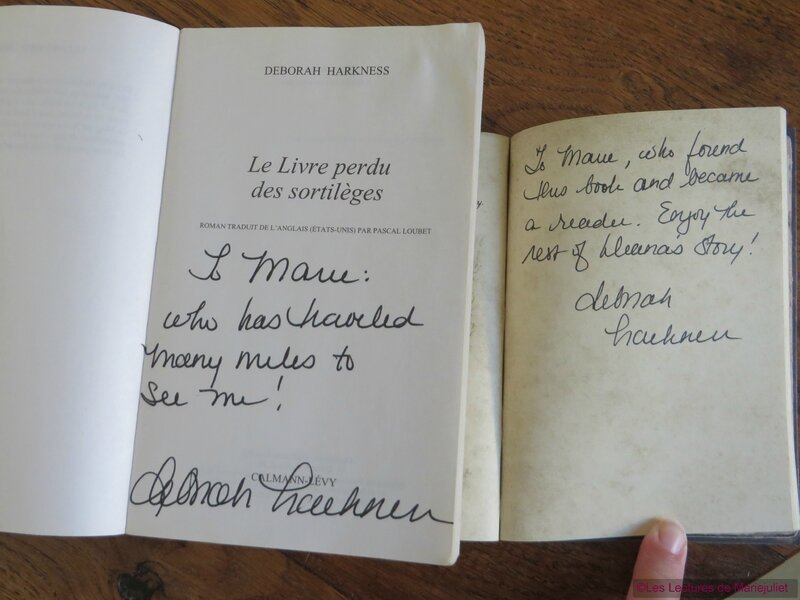 DEBORAH HARKNESS
Le Livre perdu
des sortilèges
ROMAN TRADUIT DE L'ANGLAIS (ÉTATS-UNIS) PAR PASCAL LOUBET
To Marie:
who has traveled
many miles to
see me!
CALMANN-LÉVY
Deborah Harkness
To Marie, who found
this book and became
a reader. Enjoy the
rest of Diana's story!
Deborah
Harkness
©Les Lectures de Mariejuliet